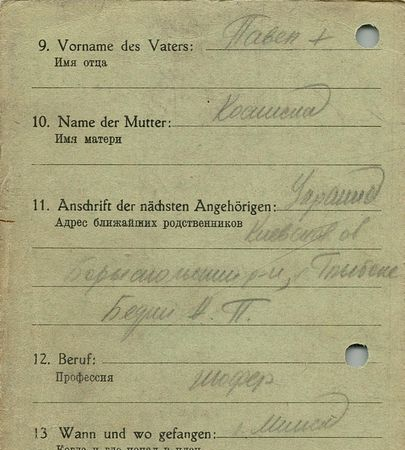 9. Vorname des Vaters: Павел +
Имя отца
10. Name der Mutter:
Имя матери
11. Anschrift der nächsten Angehörigen: Украина
Адрес ближайших родственников Киевская об
Бориспольский р-н,
А. П.
12. Beruf:
Профессия шофер
13 Wann und wo gefangen: Минск
Когда и где попал в плен